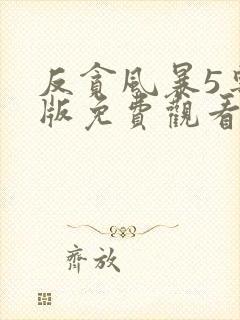 反貪風暴5
版免費觀看
齊放